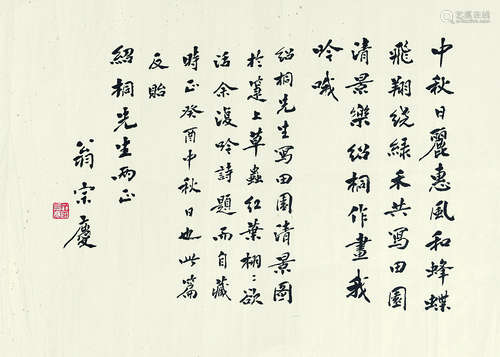 中秋日麗惠風和蜂蝶
飛翔绕綠禾共寫田園
清景樂紹桐作畫我
吟哦
紹桐先生寫田園清景圖
於箑上草蟲紅葉栩〻欲
活余復吟詩題而自藏
時正癸酉中秋日也此篇
反貽
紹桐先生两正
翁宗慶